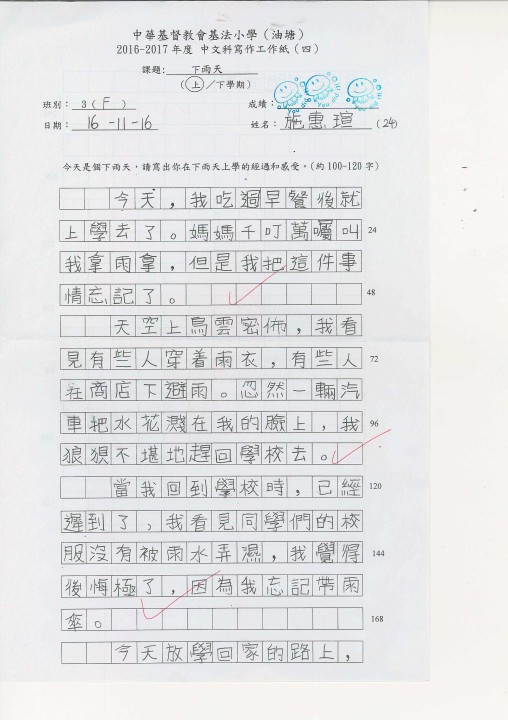 中華基督教會基法小學（油塘）
2016-2017年度 中文科寫作工作紙（四）
課題： 下雨天
（上／下學期）
班別： 3（F） 成績：
日期： 16-11-16 姓名： 施惠瑄 (24)
今天是個下雨天，請寫出你在下雨天上學的經過和感受。(約100-120字)
今天，我吃過早餐後就
上學去了。媽媽千叮萬囑叫 24
我拿雨拿，但是我把這件事
情忘記了。 48
天空上烏雲密佈，我看
見有些人穿着雨衣，有些人 72
在商店下避雨。忽然一輛汽
車把水花濺在我的臉上，我 96
狼狽不堪地趕回學校去。
當我回到學校時，已經 120
遲到了，我看見同學們的校
服沒有被雨水弄濕，我覺得 144
後悔極了，因為我忘記帶雨
傘。 168
今天放學回家的路上，